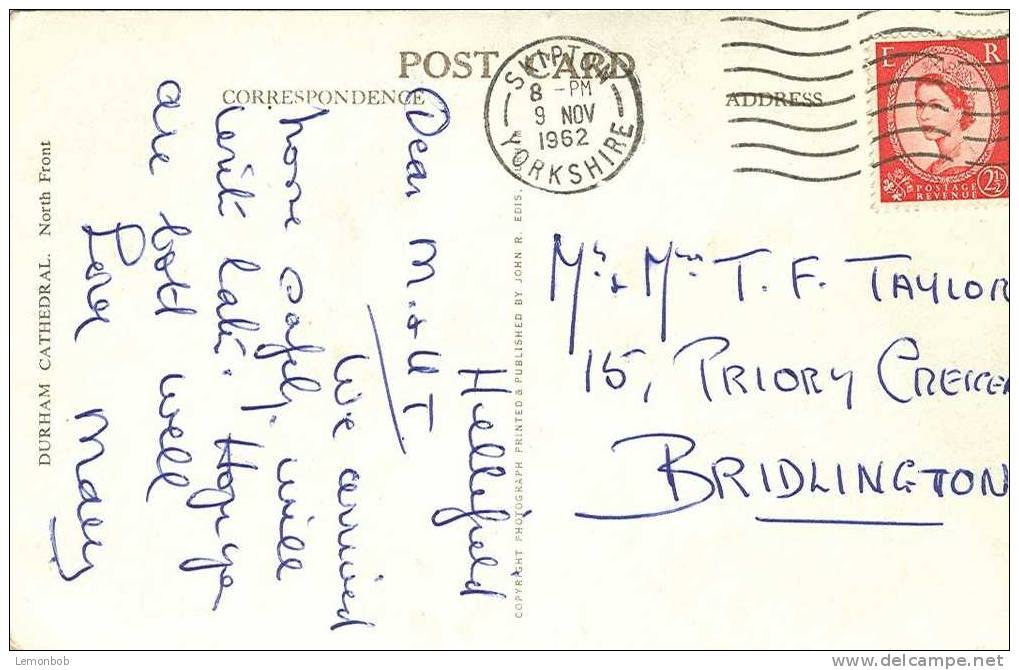 POST CARD
CORRESPONDENCE
ADDRESS
SKIPTON
8 - PM
9 NOV
1962
YORKSHIRE
E R
POSTAGE
REVENUE
2½
Hellifield
Dear M. & U T.
We arrived
home safely. will
write later. Hope ye
are both well
Love
Mr & Mrs T. F. TAYLOR
15, PRIORY CRESCEN
BRIDLINGTON
DURHAM CATHEDRAL. North Front
COPYRIGHT PHOTOGRAPH PRINTED & PUBLISHED BY JOHN R. EDIS.
Lemonbob
www.delcampe.net